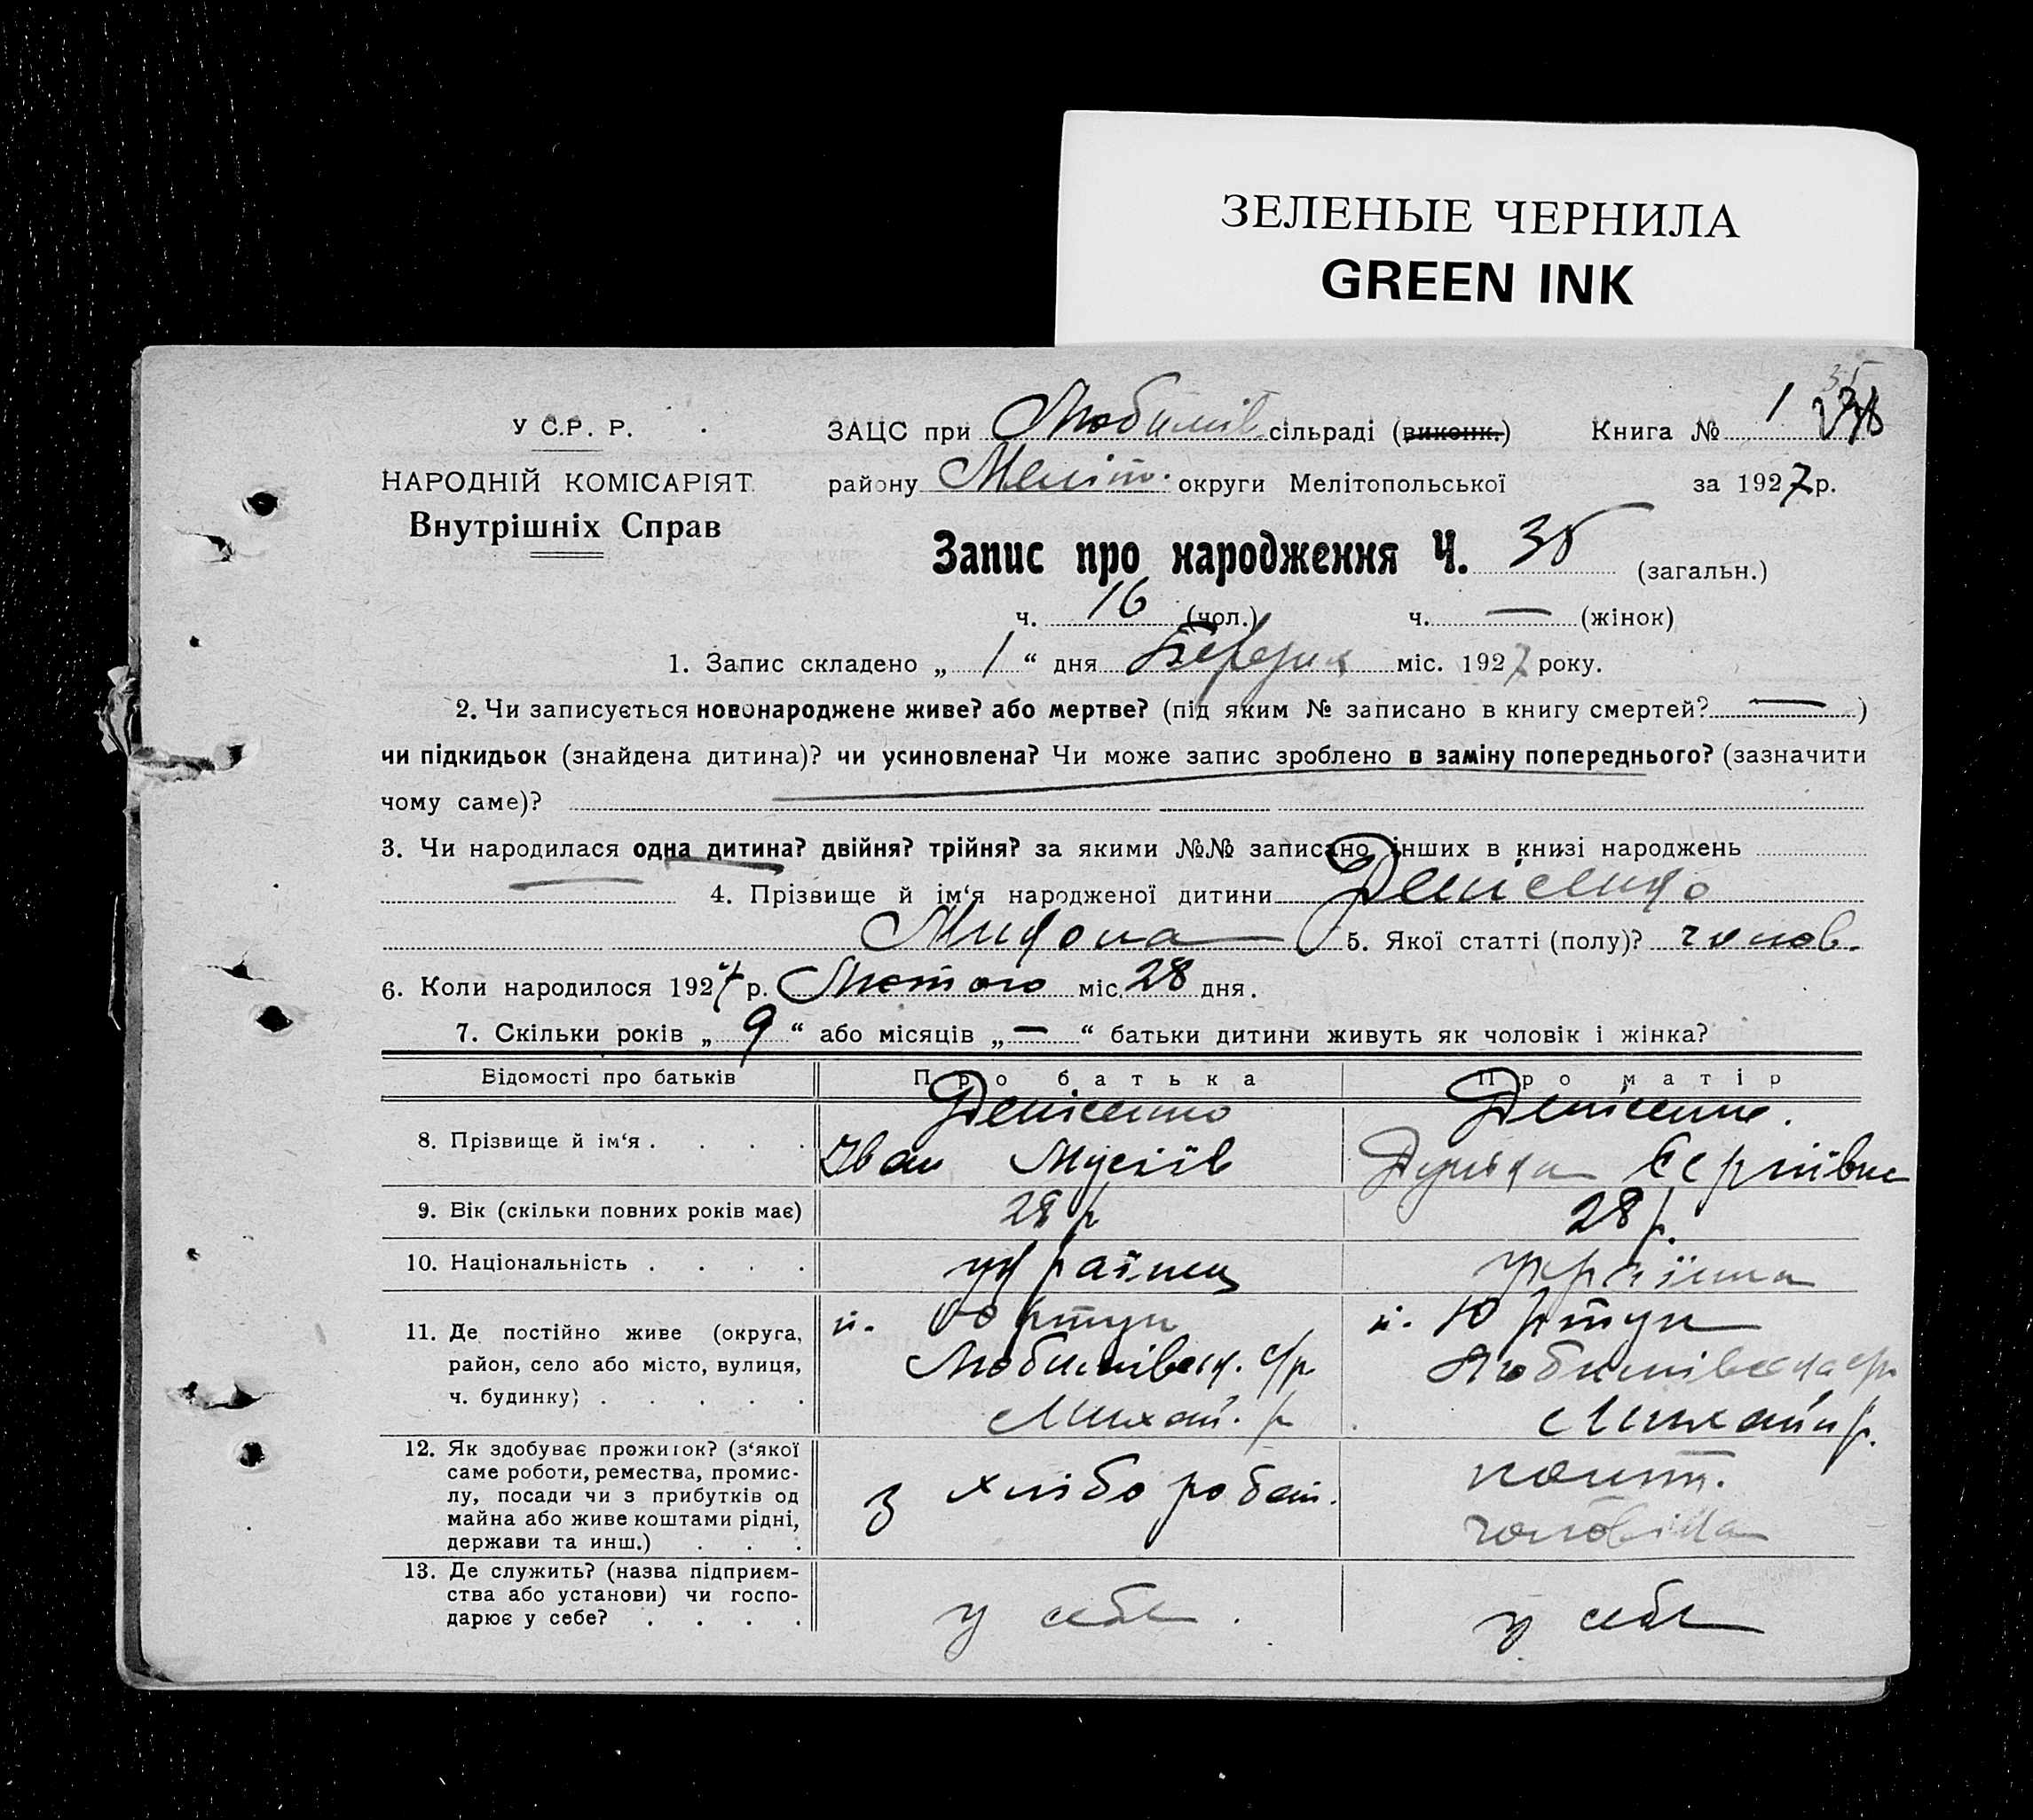 ЗЕЛЕНЫЕ ЧЕРНИЛА
GREEN INK
35
У С.Р. Р.
ЗАЦС при Любимів сільраді (виконк.) Книга № 1
НАРОДНІЙ КОМІСАРІЯТ
району Меліт. округи Мелітопольської за 1927 р.
Внутрішніх Справ
Запис про народження Ч. 35 (загальн.)
ч. 16 (чол.) ч. — (жінок)
1. Запис складено „ 1 “ дня Березня міс. 1927 року.
2. Чи записується новонароджене живе? або мертве? (під яким № записано в книгу смертей? — )
чи підкидьок (знайдена дитина)? чи усиновлена? Чи може запис зроблено в заміну попереднього? (зазначити
чому саме)?
3. Чи народилася одна дитина? двійня? трійня? за якими №№ записано інших в книзі народжень
— 4. Прізвище й ім‘я народженої дитини Денісенко
Микола 5. Якої статті (полу)? чолов.
6. Коли народилося 1927 р. Лютого міс. 28 дня.
7. Скільки років „ 9 “ або місяців „ — “ батьки дитини живуть як чоловік і жінка?
Відомості про батьків Про батька Про матір
Денісенко Денісенко.
8. Прізвище й ім‘я . . . .
Іван Мусіїв Єргіївна
9. Вік (скільки повних років має) 28 р 28 р.
10. Національність . . . . українец україінка
11. Де постійно живе (округа, район, село або місто, вулиця, ч. будинку) . . . . .
п. Юртук п. Юртук
Любимівськ. с/р Любимівська с/р
Михай. р Михайл р.
12. Як здобуває прожиток? (з‘якої саме роботи, ремества, промислу, посади чи з прибутків од майна або живе коштами рідні, держави та инш.) . . .
з хліборобст. кошт.
чоловіка
13. Де служить? (назва підприємства або установи) чи господарює у себе? . . . .
у себе . у себе